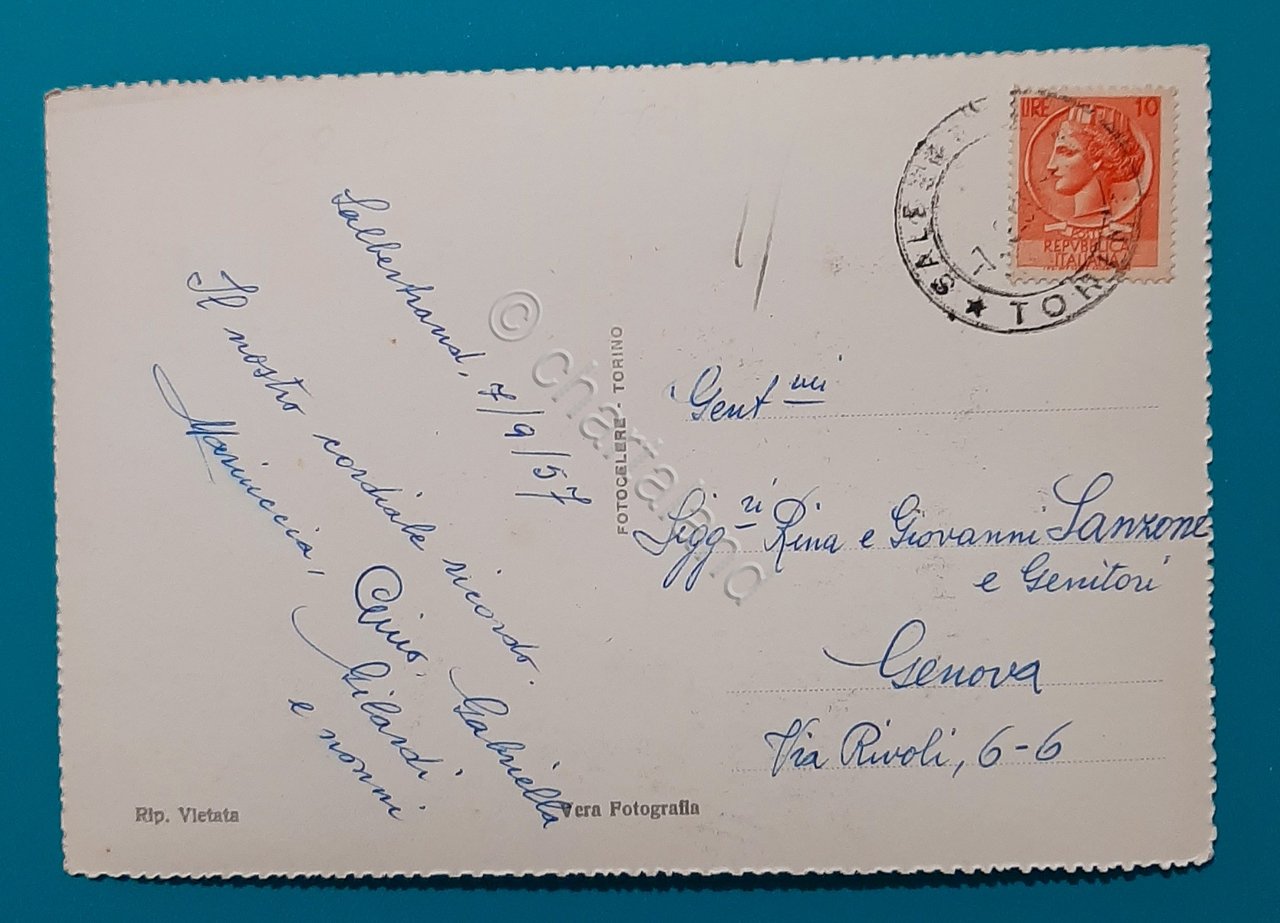 Salbertrand, 7/9/57
Il nostro cordiale ricordo.
Mariuccia, Gino, Gabriella
Gilardi
e nonni
Rip. Vietata
Vera Fotografia
FOTOCELERE - TORINO
© chartaland
LIRE 10
POSTE
REPVBBLICA
ITALIANA
SALB
TORINO
Gent mi
Sigg ri Rina e Giovanni Sanzone
e Genitori
Genova
Via Rivoli, 6-6